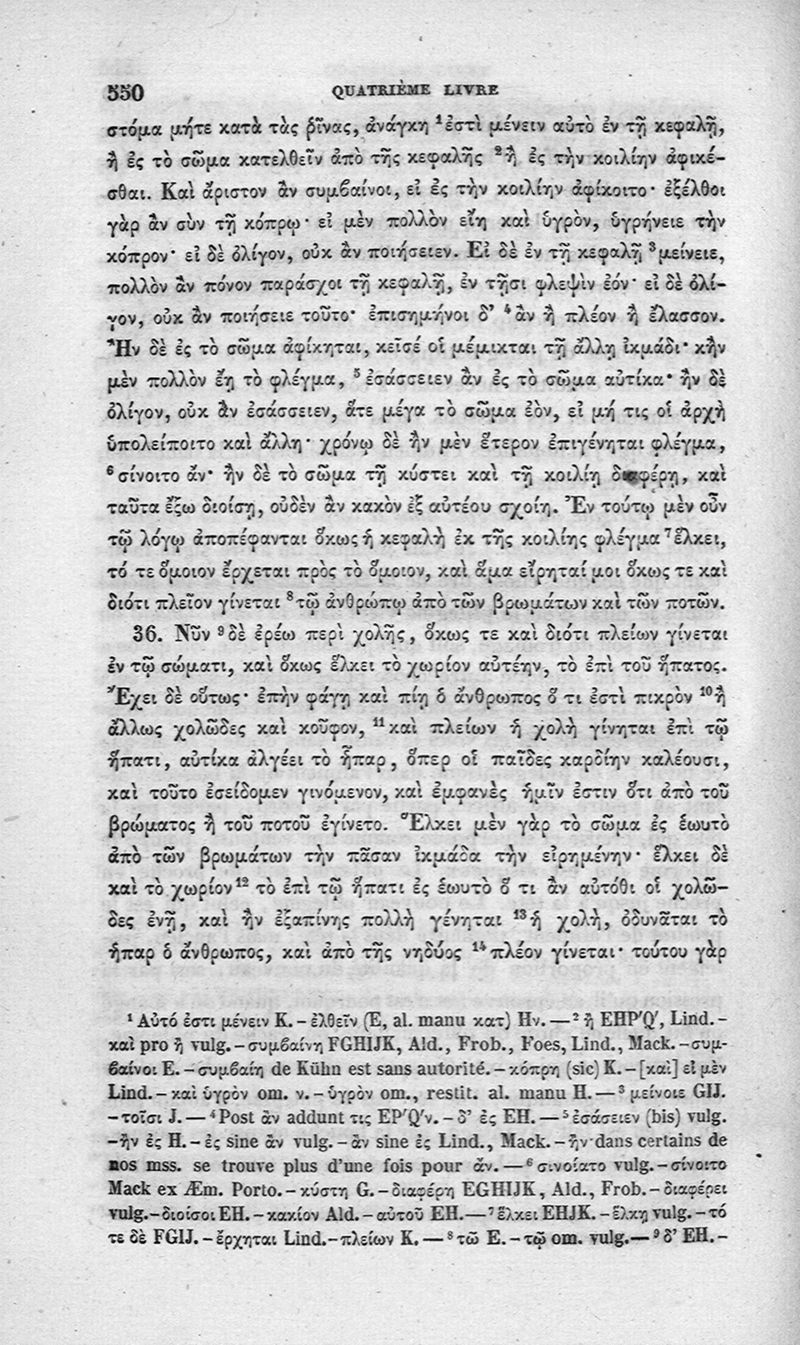 550 QUATRIÈME LIVRE
στόμα μήτε κατὰ τὰς ῥῖνας, ἀνάγκη ¹ἐστὶ μένειν αὐτὸ ἐν τῇ κεφαλῇ,
ἢ ἐς τὸ σῶμα κατελθεῖν ἀπὸ τῆς κεφαλῆς ²ἢ ἐς τὴν κοιλίην ἀφικέ-
σθαι. Καὶ ἄριστον ἂν συμβαίνοι, εἰ ἐς τὴν κοιλίην ἀφίκοιτο· ἐξέλθοι
γὰρ ἂν σὺν τῇ κόπρῳ· εἰ μὲν πολλὸν εἴη καὶ ὑγρὸν, ὑγρήνειε τὴν
κόπρον· εἰ δὲ ὀλίγον, οὐκ ἂν ποιήσειεν. Εἰ δὲ ἐν τῇ κεφαλῇ ³μείνειε,
πολλὸν ἂν πόνον παράσχοι τῇ κεφαλῇ, ἐν τῇσι φλεψὶν ἐόν· εἰ δὲ ὀλί-
γον, οὐκ ἂν ποιήσειε τοῦτο· ἐπισημήνοι δ’ ⁴ἂν ἢ πλέον ἢ ἔλασσον.
Ἢν δὲ ἐς τὸ σῶμα ἀφίκηται, κεῖσέ οἱ μέμικται τῇ ἄλλῃ ἰκμάδι· κἢν
μὲν πολλὸν ἔῃ τὸ φλέγμα, ⁵ἐσάσσειεν ἂν ἐς τὸ σῶμα αὐτίκα· ἢν δὲ
ὀλίγον, οὐκ ἂν ἐσάσσειεν, ἅτε μέγα τὸ σῶμα ἐὸν, εἰ μή τις οἱ ἀρχὴ
ὑπολείποιτο καὶ ἄλλη· χρόνῳ δὲ ἢν μὲν ἕτερον ἐπιγένηται φλέγμα,
⁶σίνοιτο ἄν· ἢν δὲ τὸ σῶμα τῇ κύστει καὶ τῇ κοιλίῃ διαφέρῃ, καὶ
ταῦτα ἔξω διοίσῃ, οὐδὲν ἂν κακὸν ἐξ αὐτέου σχοίη. Ἐν τούτῳ μὲν οὖν
τῷ λόγῳ ἀποπέφανται ὅκως ἡ κεφαλὴ ἐκ τῆς κοιλίης φλέγμα ⁷ἕλκει,
τό τε ὅμοιον ἔρχεται πρὸς τὸ ὅμοιον, καὶ ἅμα εἴρηταί μοι ὅκως τε καὶ
διότι πλεῖον γίνεται ⁸τῷ ἀνθρώπῳ ἀπὸ τῶν βρωμάτων καὶ τῶν ποτῶν.
36. Νῦν ⁹δὲ ἐρέω περὶ χολῆς, ὅκως τε καὶ διότι πλείων γίνεται
ἐν τῷ σώματι, καὶ ὅκως ἕλκει τὸ χωρίον αὐτέην, τὸ ἐπὶ τοῦ ἥπατος.
Ἔχει δὲ οὕτως· ἐπὴν φάγῃ καὶ πίῃ ὁ ἄνθρωπος ὅ τι ἐστὶ πικρὸν ¹⁰ἢ
ἄλλως χολῶδες καὶ κοῦφον, ¹¹καὶ πλείων ἡ χολὴ γίνηται ἐπὶ τῷ
ἥπατι, αὐτίκα ἀλγέει τὸ ἧπαρ, ὅπερ οἱ παῖδες καρδίην καλέουσι,
καὶ τοῦτο ἐσείδομεν γινόμενον, καὶ ἐμφανὲς ἡμῖν ἐστιν ὅτι ἀπὸ τοῦ
βρώματος ἢ τοῦ ποτοῦ ἐγίνετο. Ἕλκει μὲν γὰρ τὸ σῶμα ἐς ἑωυτὸ
ἀπὸ τῶν βρωμάτων τὴν πᾶσαν ἰκμάδα τὴν εἰρημένην· ἕλκει δὲ
καὶ τὸ χωρίον ¹² τὸ ἐπὶ τῷ ἥπατι ἐς ἑωυτὸ ὅ τι ἂν αὐτόθι οἱ χολῶ-
δες ἐνῇ, καὶ ἢν ἐξαπίνης πολλὴ γένηται ¹³ἡ χολὴ, ὀδυνᾶται τὸ
ἧπαρ ὁ ἄνθρωπος, καὶ ἀπὸ τῆς νηδύος ¹⁴πλέον γίνεται· τούτου γὰρ
¹ Αὐτό ἐστι μένειν K. – ἐλθεῖν (E, al. manu κατ) Hν. — ² ἢ EHP'Q', Lind. –
καὶ pro ἢ vulg. – συμβαίνη FGHIJK, Ald., Frob., Foes, Lind., Mack. – συμ-
βαίνοι E. – συμβαίη de Kühn est sans autorité. – κόπρη (sic) K. – [καὶ] εἰ μὲν
Lind. – καὶ ὑγρὸν om. ν. – ὑγρὸν om., restit. al. manu H. — ³ μείνοιε GIJ.
– τοῖσι J. — ⁴ Post ἂν addunt τις EP'Q'ν. – δ’ ἐς EH. — ⁵ ἐσάσειεν (bis) vulg.
– ἢν ἐς H. – ἐς sine ἂν vulg. – ἂν sine ἐς Lind., Mack. – ἢν dans certains de
nos mss. se trouve plus d'une fois pour ἄν. — ⁶ σινοίατο vulg. – σίνοιτο
Mack ex Æm. Porto. – κύστη G. – διαφέρη EGHIJK, Ald., Frob. – διαφέρει
vulg. – διοίσοι EH. – κακίον Ald. – αὐτοῦ EH. — ⁷ ἕλκει EHJK. – ἕλκῃ vulg. – τό
τε δὲ FGIJ. – ἔρχηται Lind. – πλείων K. — ⁸ τῶ E. – τῷ om. vulg. — ⁹ δ’ EH. –